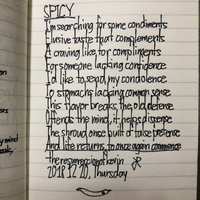 SPICY
I'm searching for some condiments
Elusive taste that complements
A craving like for compliments
For someone lacking confidence
I'd like to send my condolence
To stomachs lacking common sense
This flavor breaks the old defense
Offends the mind, it helps disperse
The shroud once built of false pretense
And life returns to once again commence
2018.12.20, Thursday